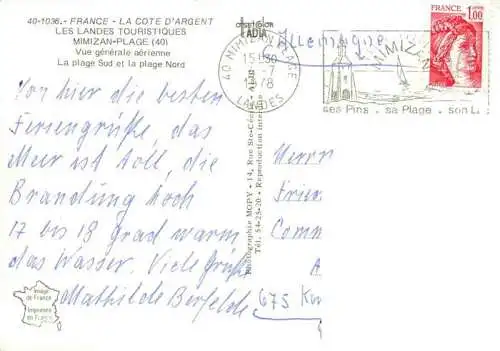 40-1036.- FRANCE - LA COTE D'ARGENT
LES LANDES TOURISTIQUES
MIMIZAN-PLAGE (40)
Vue générale aérienne
La plage Sud et la plage Nord
LADIA
Allemagne
40 MIMIZAN PLAGE
15H30
-7
78
LANDES
MIMIZAN
ses Pins . sa Plage . son L
FRANCE
1,00
Von hier die besten
Feriengrüße, das
Meer ist toll, die
Brandung hoch
17 bis 18 grad warm
das Wasser. Viele Grüße
Mathilde
Photographie MOPY - 14, Rue Ste-Céc
Tél. 54-25-20 - Reproduction inter
Herrn
Frien
Comm
A
675 Kai
Image
de France
Imprimée
en France